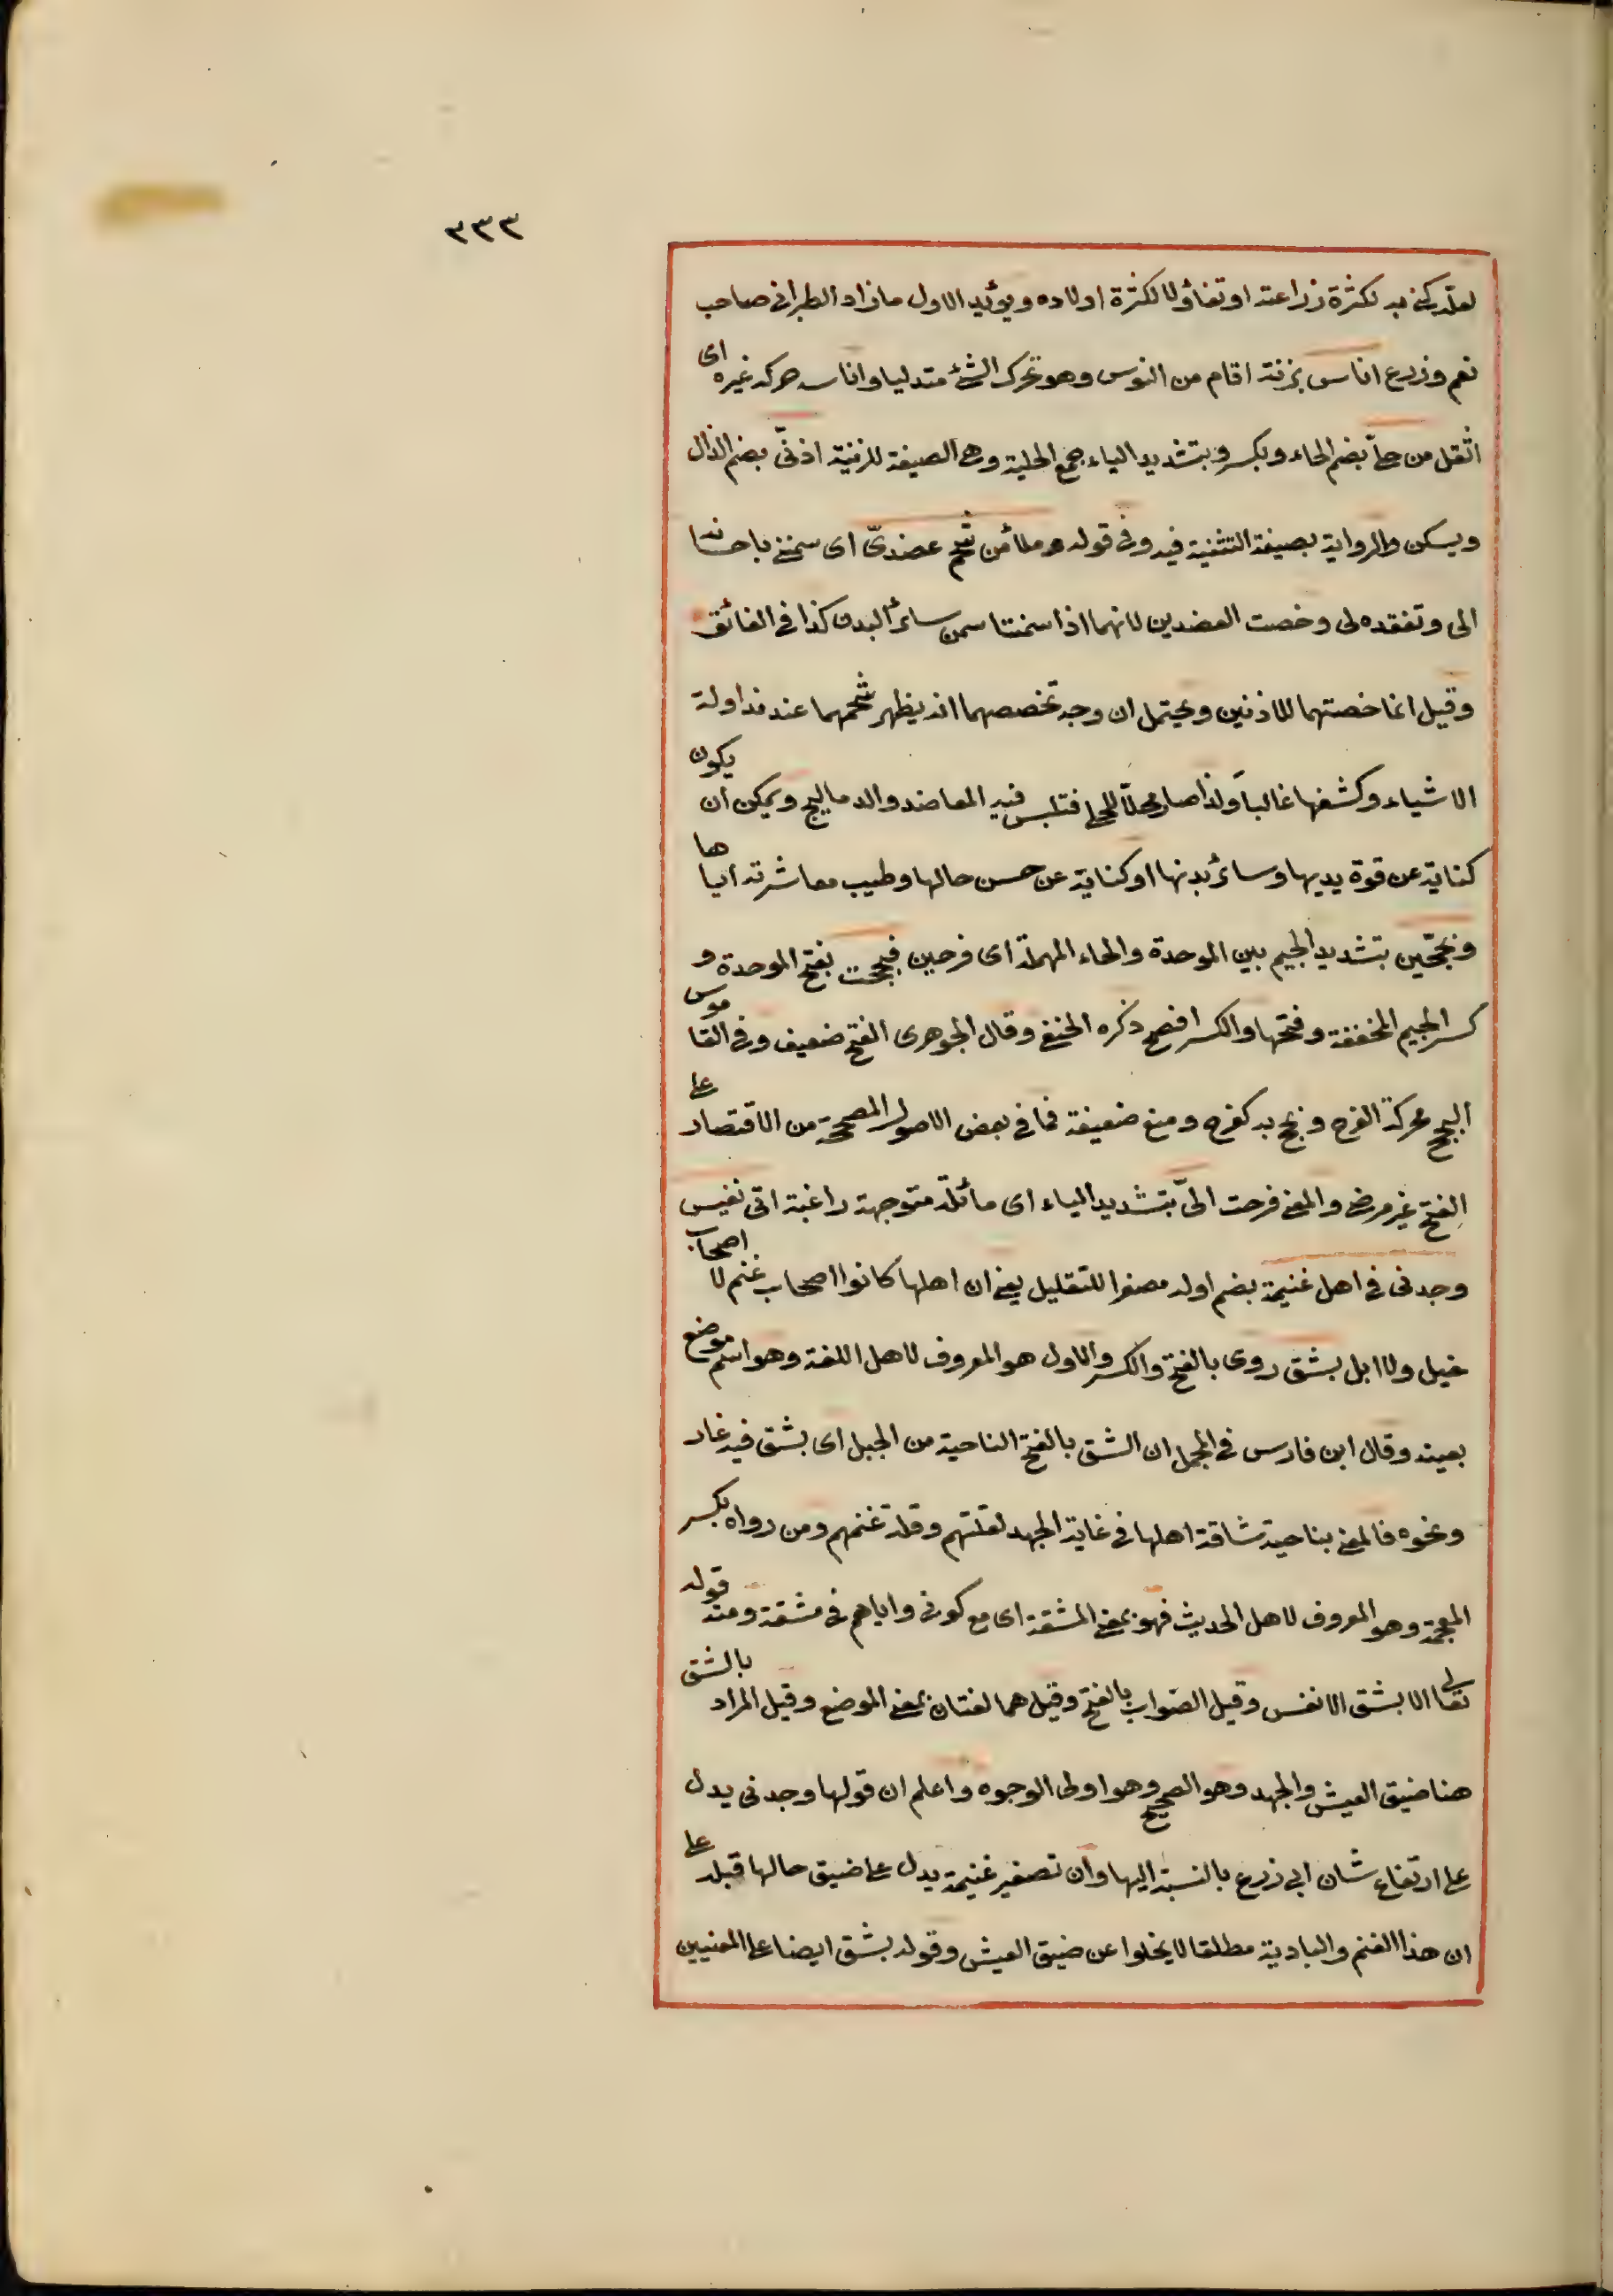 ٣٣٣
لعله كنى به لكثرة زراعته او تفاؤلا لكثرة اولاده ويؤيد الاول ما زاد الطبرانى صاحب
نعم وزرع اناس بزنة اقام من النوس وهو تحرك الشئ متدليا واناسه حركه غيره اى
اثقل من حلىّ بضم الحاء وبكسر وبتشديد الياء جمع الحلية وهى الصيغة للزينة اذنىّ بضم الذال
ويسكن والرواية بصيغة التثنية فيه وفى قوله وملأ من شحم عضدىّ اى سمننى باحسانه
الى وتفقده لى وخصت العضدين لانهما اذا سمنتا سمن سائر البدن كذا فى الفائق
وقيل انما خصتهما للاذنين ويحتمل ان وجه تخصصهما انه يظهر شحمهما عند مداولة
الاشياء وكشفها غالباً ولذا صار محلاّ للحلى فتلبس فيه المعاضد والدماليج ويمكن ان يكون
كناية عن قوة يديها وسائر بدنها او كناية عن حسن حالها وطيب معاشرته اياها
وبجّحنى بتشديد الجيم بين الموحدة والحاء المهملة اى فرحنى فبجحت بفتح الموحدة و
كسر الجيم المخففة وفتحها والكسر افصح ذكره الحنفى وقال الجوهرى الفتح ضعيف وفى القاموس
البجح محركة الفرح وبجح به كفرح ومنع ضعيفة فما فى بعض الاصول المصححة من الاقتصار على
الفتح غير مرضى والمعنى فرحت الىّ بتشديد الياء اى مائلة متوجهة راغبة اتى نفيس
وجدنى فى اهل غنيمة بضم اوله مصغرا للتقليل يعنى ان اهلها كانوا اصحاب غنم لا اصحاب
خيل ولا ابل بشق روى بالفتح والكسر والاول هو المعروف لاهل اللغة وهو اسم موضع
بعينه وقال ابن فارس فى المجمل ان الشق بالفتح الناحية من الجبل اى بشق فيه غار
ونحوه فالمعنى بناحية شاقة اهلها فى غاية الجهد لقلتهم وقلة غنمهم ومن رواه بكسر
المعجمة وهو المعروف لاهل الحديث فهو بمعنى المشقة اى مع كونى واياهم فى مشقة ومنه قوله
تعالى الا بشق الانفس وقيل الصّواب بالفتح وقيل هما لغتان بمعنى الموضع وقيل المراد بالشق
هنا ضيق العيش والجهد وهو الصحيح وهو اولى الوجوه واعلم ان قولها وجدنى يدل
على ارتفاع شان ابى زرع بالنسبة اليها وان تصغير غنيمة يدل على ضيق حالها قبله على
ان هذا الغنم والبادية مطلقا لا يخلوا عن ضيق العيش وقوله بشق ايضا على المعنيين